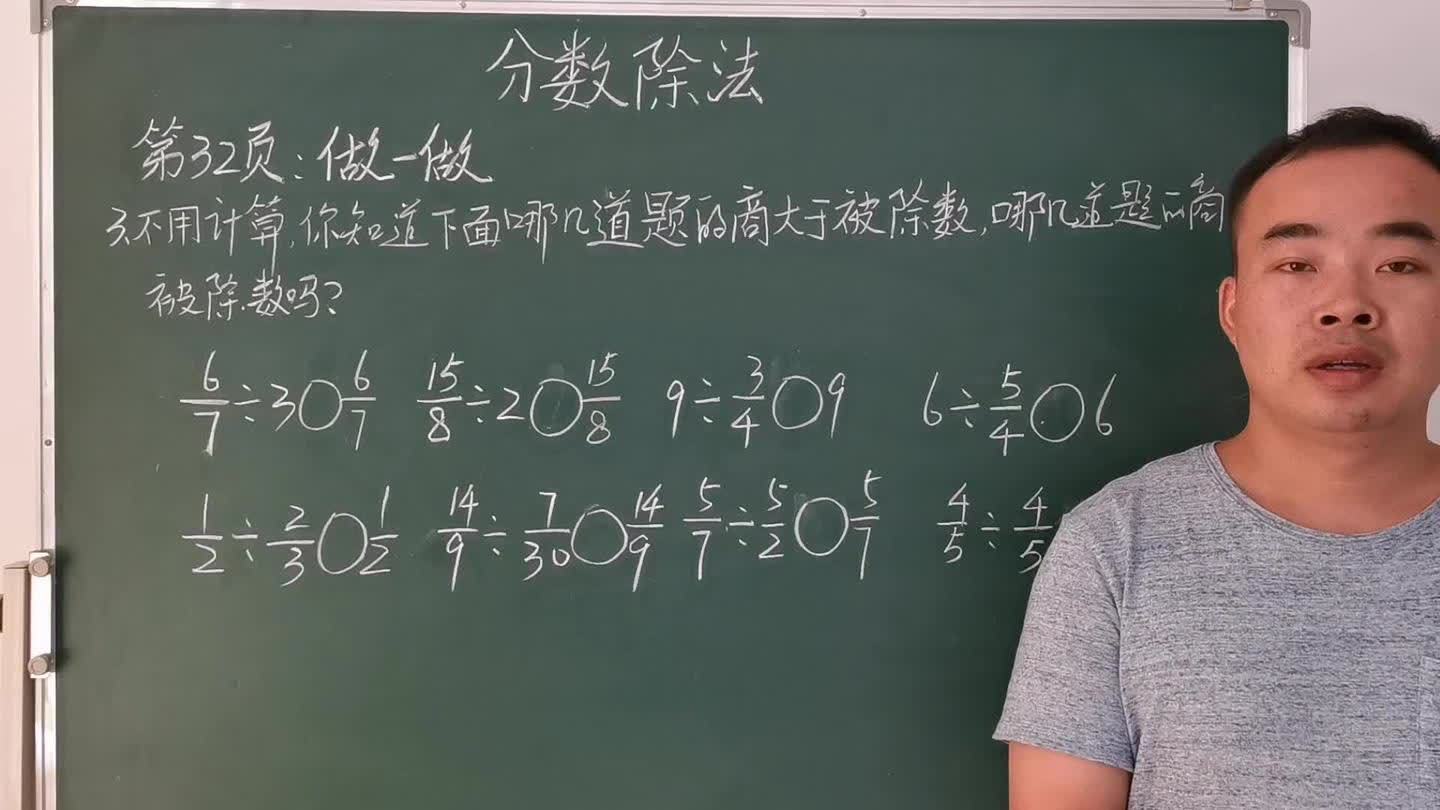 分数除法
第32页:做一做
3.不用计算,你知道下面哪几道题的商大于被除数,哪几道题的商
被除数吗?
6/7÷3○6/7 15/8÷2○15/8 9÷3/4○9 6÷5/4○6
1/2÷2/3○1/2 14/9÷7/30○14/9 5/7÷5/2○5/7 4/5÷4/5